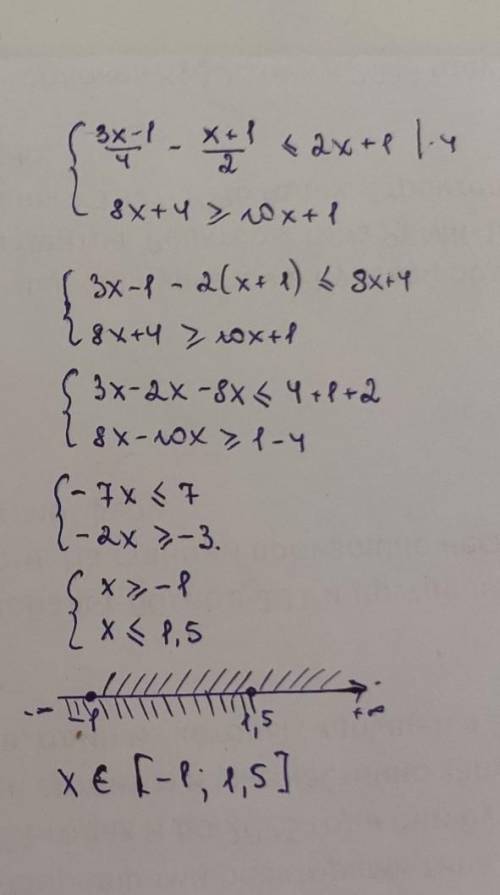 { (3x-1)/4 - (x+1)/2 ≤ 2x+1 |·4
8x+4 ≥ 10x+1
{ 3x-1 - 2(x+1) ≤ 8x+4
8x+4 ≥ 10x+1
{ 3x-2x-8x ≤ 4+1+2
8x-10x ≥ 1-4
{ -7x ≤ 7
-2x ≥ -3.
{ x ≥ -1
x ≤ 1,5
-1 1,5 +∞
x ∈ [-1; 1,5]